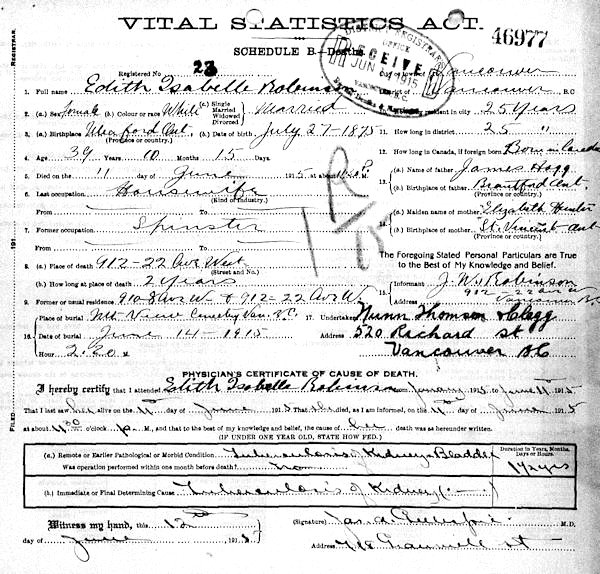 VITAL STATISTICS ACT.
46977
SCHEDULE B—Deaths
DISTRICT REGISTRAR OFFICE RECEIVED JUN 1915 VANCOUVER
Registered No. 23
Vancouver
1. Full name Edith Isabelle Robinson District of Vancouver B.C
2. (a) Sex female (b) Colour or race White (c) Single Married Widowed Divorced Married resident in city 25 Years
3. (a) Birthplace Ont (Province or country.) (b) Date of birth July 27 1875 11. How long in district 25 "
4. Age 39 Years 10 Months 15 Days. 12. How long in Canada, if foreign born Born in Canada
5. Died on the 11 day of June 1915 at about
13. (a) Name of father James Hogg
(b) Birthplace of father Brantford Ont. (Province or country.)
6. Last occupation Housewife (Kind of Industry.)
From To
14. (a) Maiden name of mother Elizabeth Hunter
(b) Birthplace of mother St. Vincent Ont (Province or country.)
7. Former occupation Spinster
From To
The Foregoing Stated Personal Particulars are True to the Best of My Knowledge and Belief.
8. (a) Place of death 912-22 Ave West (Street and No.)
(b) How long at place of death 2 years
15. Informant J. W. Robinson
Address 912 22 Ave W Vancouver B.C.
9. Former or usual residence 910 8 Ave W & 912-22 Ave W.
16. Place of burial Mt View Cemetery Van. B.C. 17. Undertaker Nunn Thomson & Clegg
Date of burial June 14-1915 Address 520 Richard St
Hour 2.20 M. Vancouver B.C
PHYSICIAN'S CERTIFICATE OF CAUSE OF DEATH.
I hereby certify that I attended Edith Isabelle Robinson from January 1915 to June 11 1915
That I last saw her alive on the 11th day of June 1915 That she died, as I am informed, on the 11th day of June 1915
at about 4.30 o'clock p. M., and that to the best of my knowledge and belief, the cause of her death was as hereunder written.
(IF UNDER ONE YEAR OLD, STATE HOW FED.)
(a.) Remote or Earlier Pathological or Morbid Condition Tuberculosis of Kidney & Bladder Duration in Years, Months, Days or Hours.
Was operation performed within one month before death? No
(b.) Immediate or Final Determining Cause Tuberculosis of Kidney
Witness my hand, this 12th (Signature) M.D.
day of June 1915 Address
REGISTRAR.
191
FILED